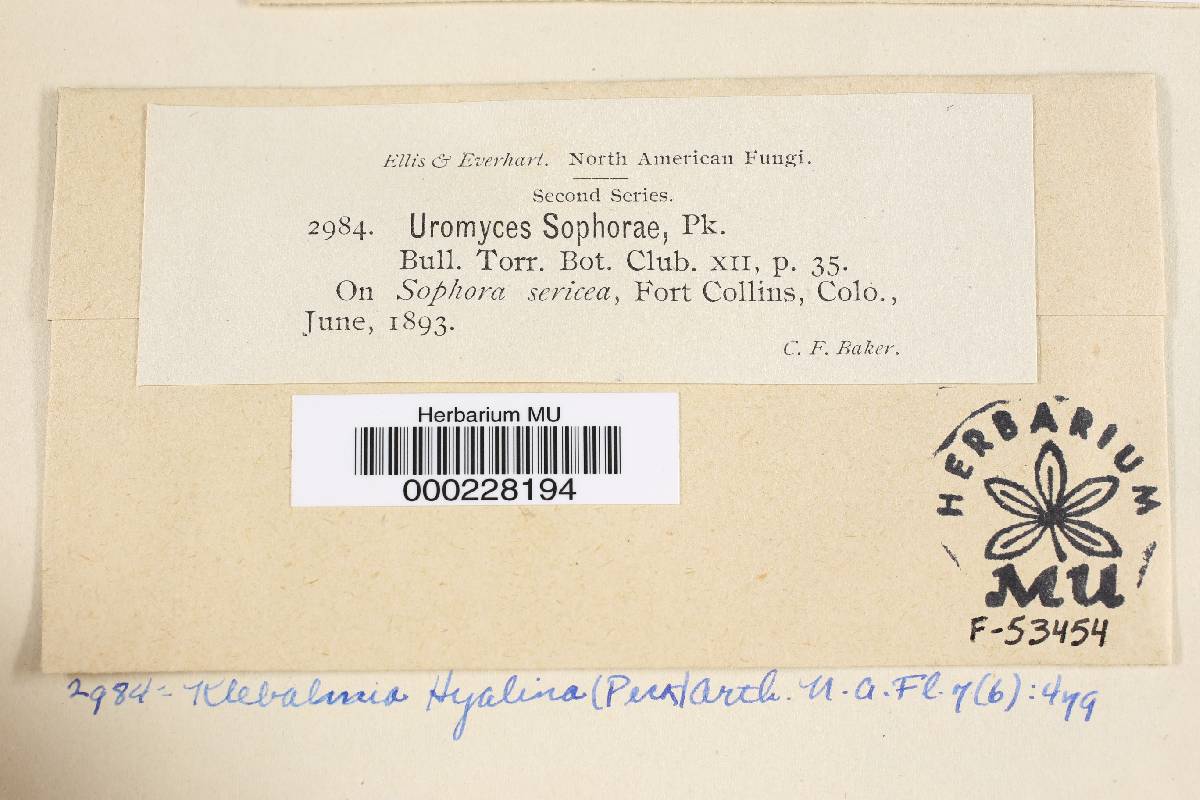 Ellis & Everhart. North American Fungi.
Second Series.
2984. Uromyces Sophorae, Pk.
Bull. Torr. Bot. Club. XII, p. 35.
On Sophora sericea, Fort Collins, Colo.,
June, 1893.
C. F. Baker.
Herbarium MU
000228194
HERBARIUM
MU
F-53454
2984 = Klebahnia Hyalina (Peck) Arth. N. a. Fl. 7(6): 479